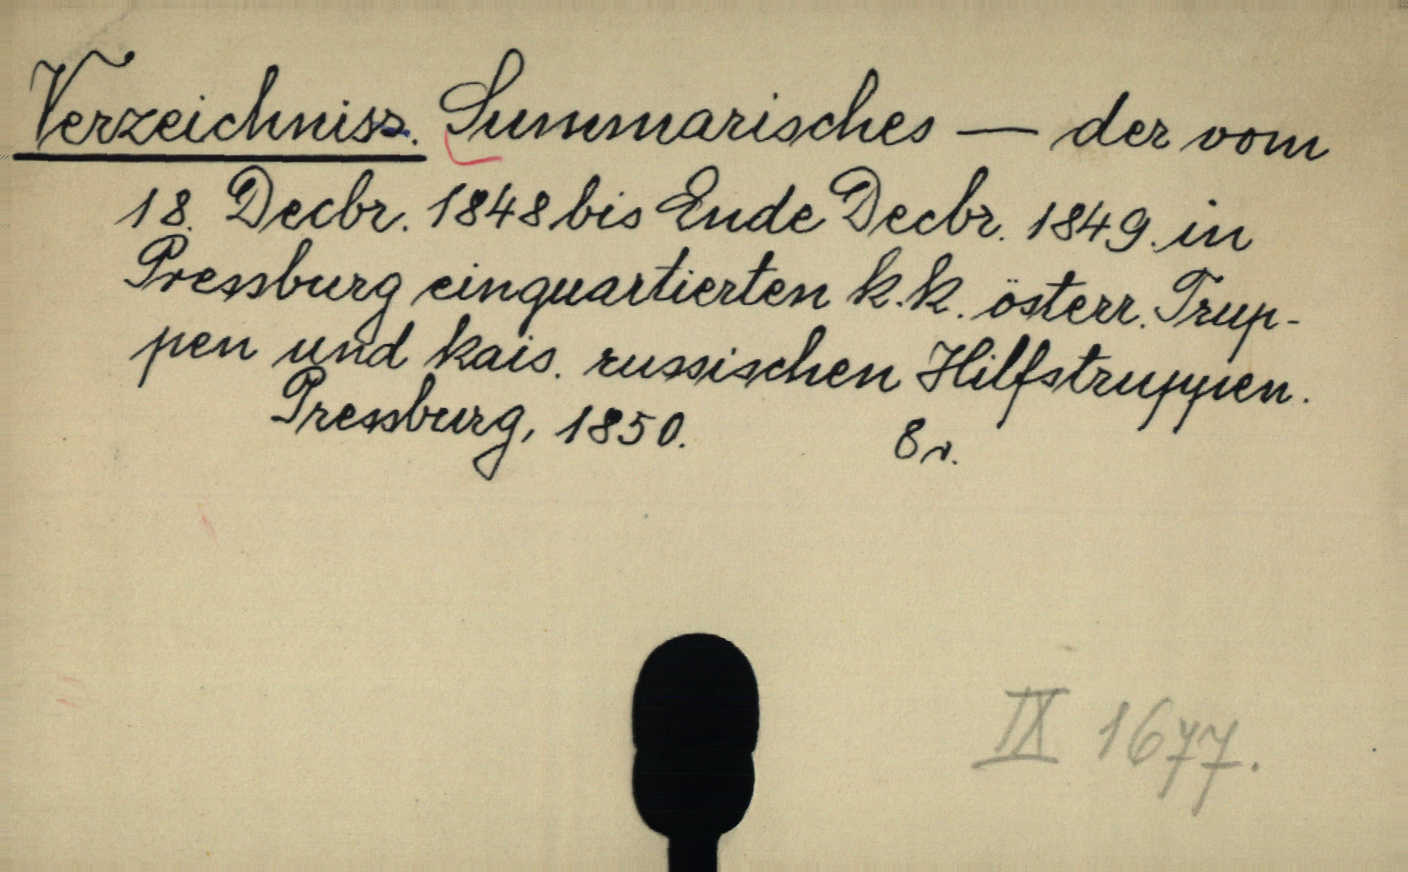 Verzeichniss. Summarisches — der vom
18. Decbr. 1848 bis Ende Decbr. 1849. in
Pressburg einquartierten k.k. österr. Trup-
pen und kais. russischen Hilfstruppen.
Pressburg, 1850. 8r.
IX 1677.